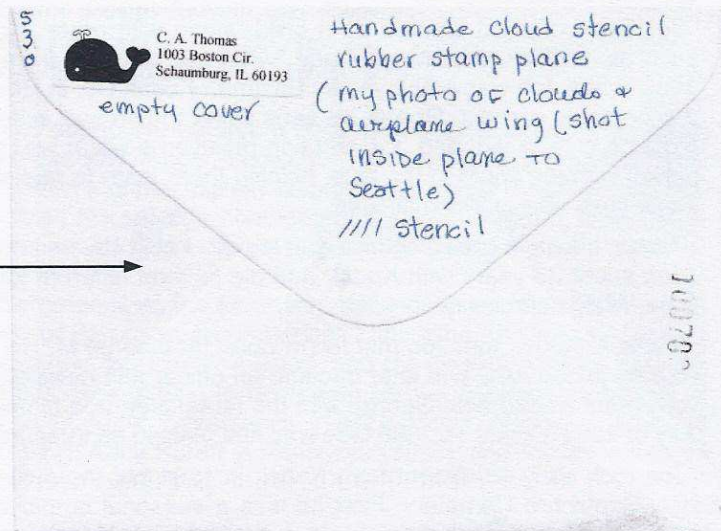 530
C. A. Thomas
1003 Boston Cir.
Schaumburg, IL 60193
empty cover
Handmade cloud stencil
rubber stamp plane
(my photo of clouds &
airplane wing (shot
inside plane to
Seattle)
//// stencil